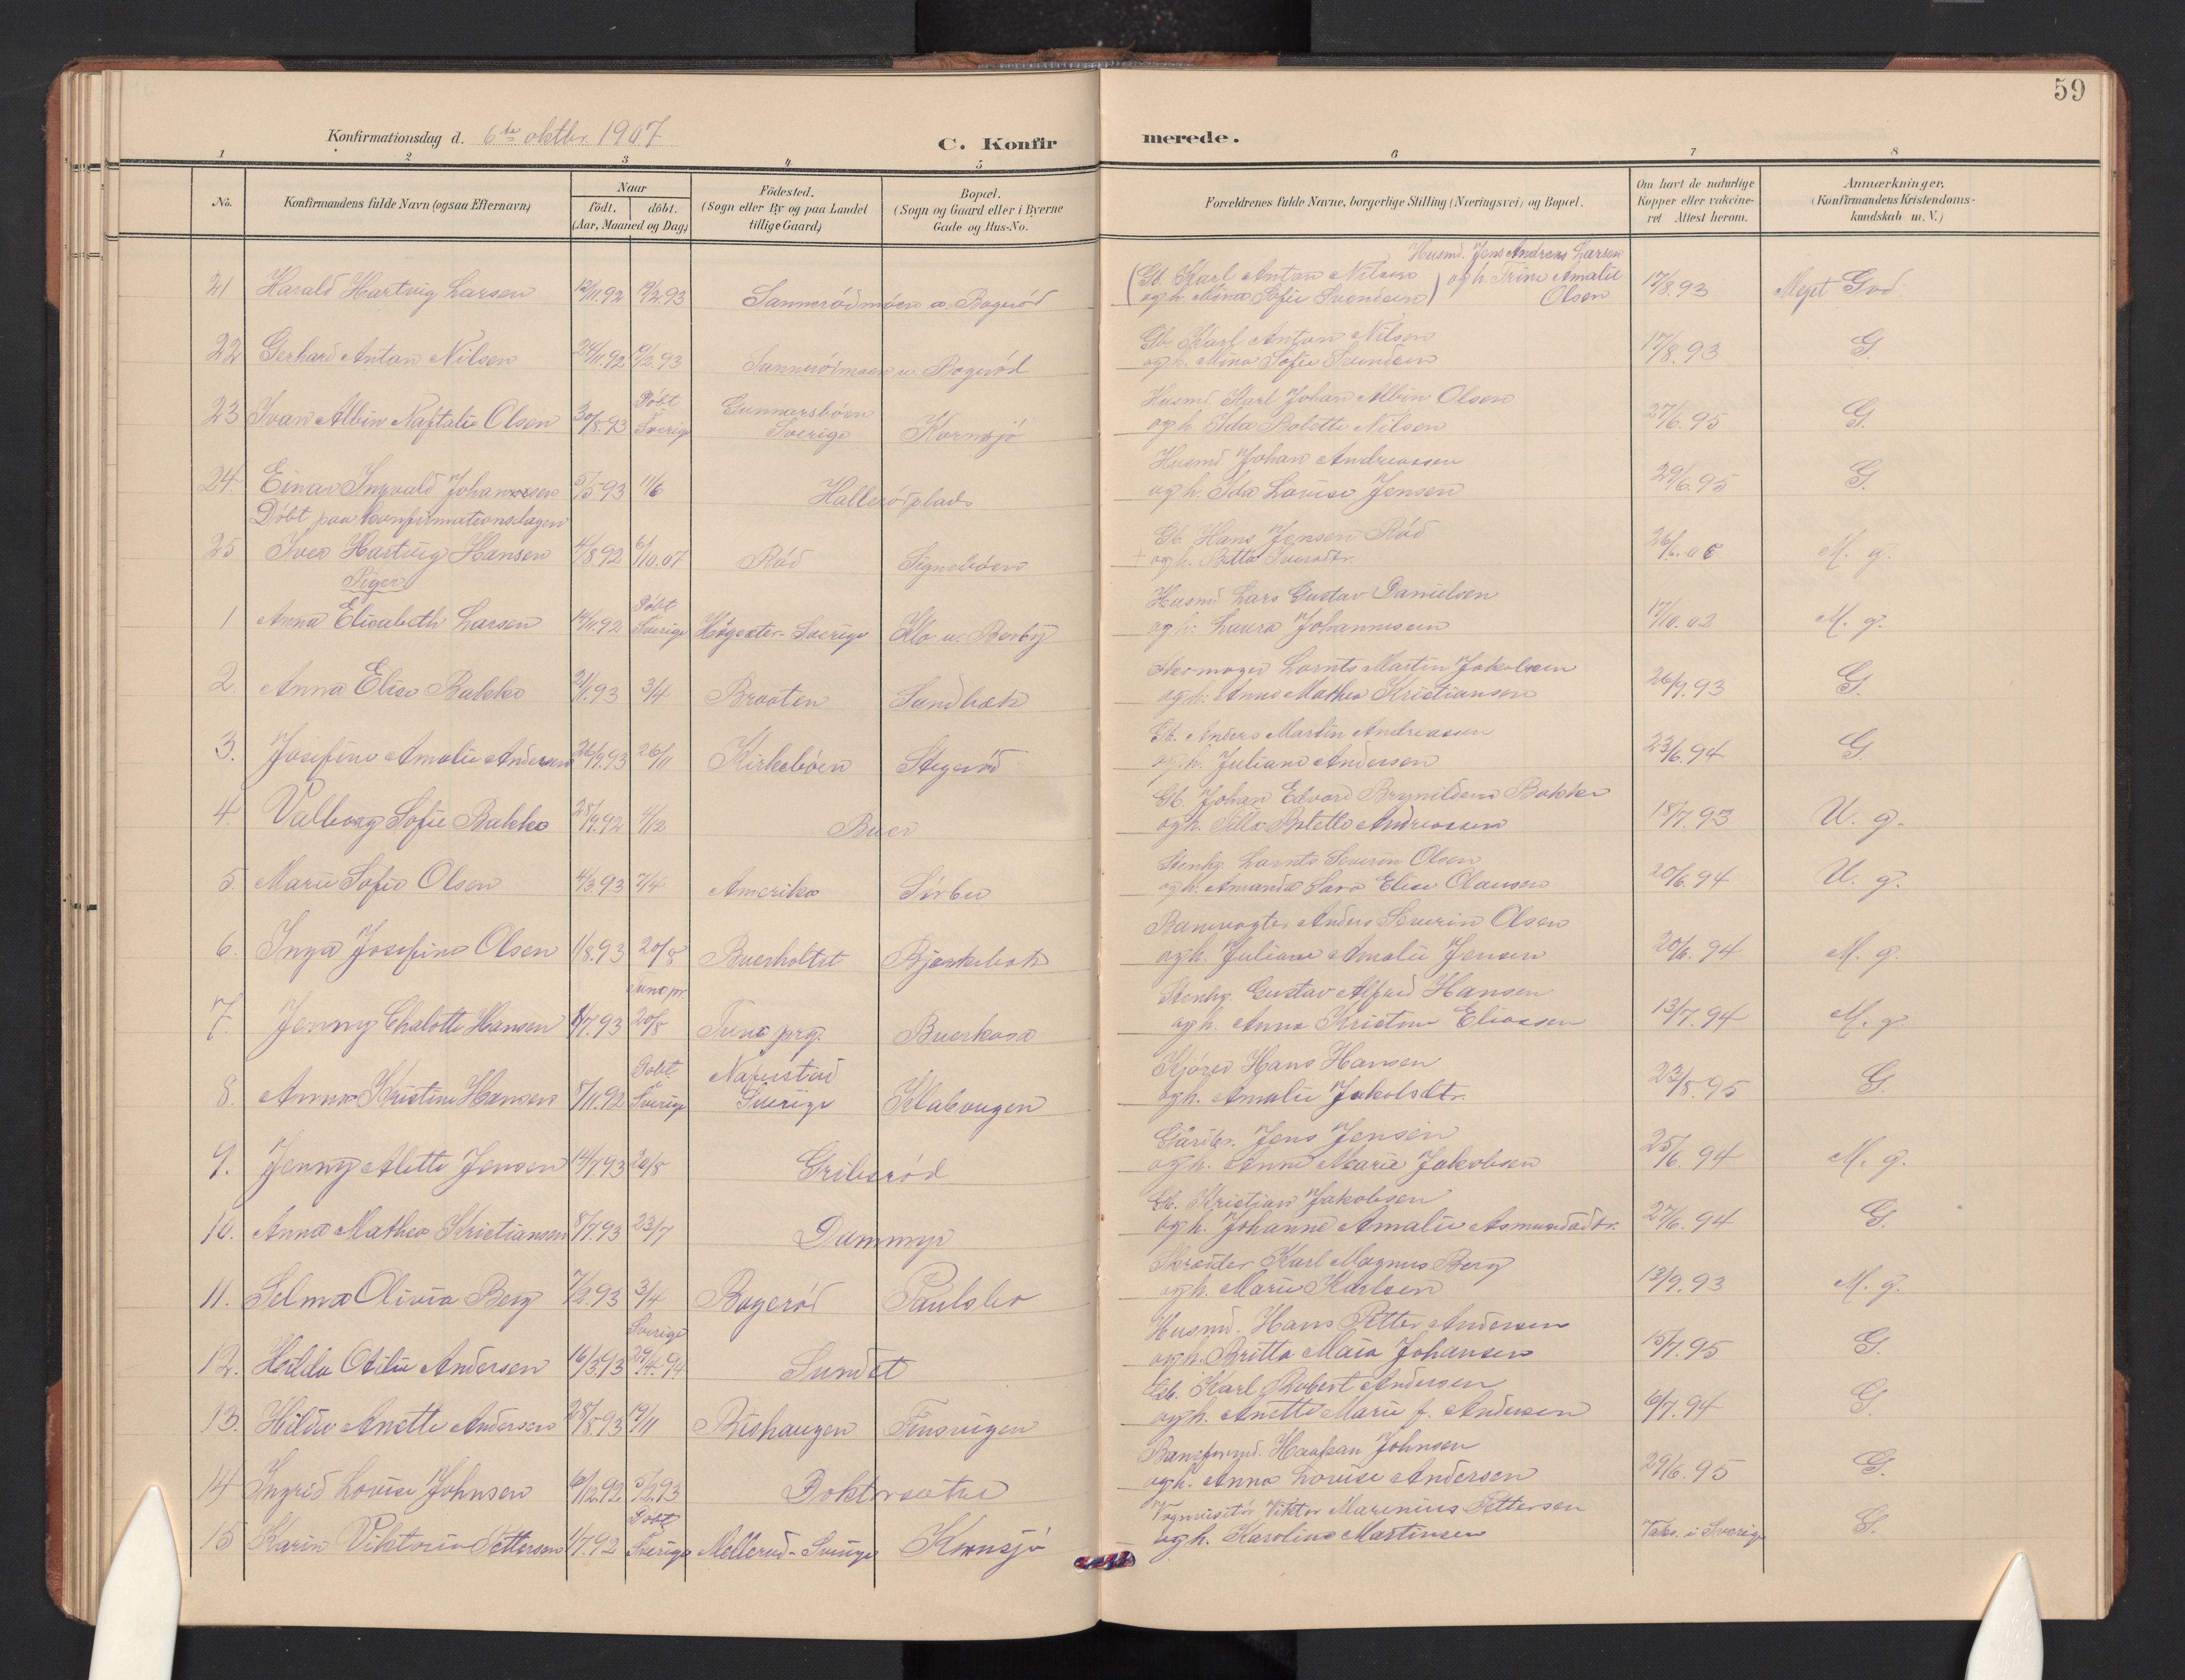 59
Konfirmationsdag d. 6te oktbr. 1907
C. Konfir merede.
1 2 3 4 5 6 7 8
No.
Konfirmandens fulde Navn (ogsaa Efternavn)
Naar
födt. döbt.
(Aar, Maaned og Dag)
Födested.
(Sogn eller By og paa Landet
tillige Gaard)
Bopæl.
(Sogn og Gaard eller i Byerne
Gade og Hus-No.
Forældrenes fulde Navne, borgerlige Stilling (Næringsvei) og Bopæl.
Om havt de naturlige
Kopper eller vakcine-
ret Attest herom.
Anmærkninger.
(Konfirmandens Kristendoms-
kundskab m. V.)
Husmd. Jens Andreas Larsen
(Gb. Karl Anton Nilsen
og h. Mina Sofie Svendsen) og h. Trine Amalie Olsen
21 Harald Hartvig Larsen 12/11.92 19/2.93 Sannerödmoen u. Bogeröd 17/8.93 Meget God
22 Gerhard Anton Nilsen 24/11.92 19/2.93 Sannerödmoen u. Bogeröd Gb. Karl Anton Nilsen
og h. Mina Sofie Svendsen 17/8.93 G.
23 Ivan Albin Naftalie Olsen 30/8.93 Döbt i Sverige Gunnarsböen Sverige Kornsjö Husmd. Karl Johan Albin Olsen
og h. Ida Bolette Nilsen 27/6.95 G.
24. Einar Ingvald Johannesen 5/5.93 11/6 Halleröd plads Husmd Johan Andreassen
og h. Ida Lovise Jensen 29/6.95 G.
Döbt paa konfirmationsdagen
25 Iver Hartvig Hansen 4/8.92 6/10.07 Röd Signeböen Gb. Hans Jensen Röd
+ og h. Britta 26/6.06 M. g.
Piger
1 Anna Elisabeth Larsen 14/11.92 Döbt i Sverige Högsäter - Sverige Klo u. Berby Husmd Lars Gustav Danielsen
og h. Laura Johannesen 17/10.02 M. g.
2. Anna Elise Bakke 21/1.93 3/4 Braaten Sundbæk Skomager Lornts Martin Jakobsen
og h. Anne Mathea Kristiansen 26/9.93 G.
3. Josefine Amalie Andersen 26/9.93 26/11 Kirkeböen Stegeröd Gb. Anders Martin Andreassen
og h. Juliane Andersen 23/6.94 G
4. Valborg Sofie Bakke 28/9.92 4/2 Buer Gb. Johan Edvard Brynildsen Bakke
og h. Bolette Andreassen 18/7.93 U. g.
5. Marie Sofie Olsen 4/3.93 7/4 Amerika Sörbu Stenhg. Lornts Severin Olsen
og h. Amanda Sara Elise Olausen 20/6.94 U. g.
6. Inga Josefine Olsen 1/8.93 20/8 Buerholtet Bjerkebæk Banevogter Anders Severin Olsen
og h. Juliane Amalie Jensen 20/6.94 M. g.
7. Jenny Chalotte Hansen 8/7.93 Tune pr. 20/8 Tune prg. Buerkasa Stenhg. Gustav Alfred Hansen
og h. Anna Kristine Eliassen 13/7.94 M. g.
8. Anna Kristine Hansen 5/11.92 Döbt i Sverige Naverstad Sverige Klabougen Kjörer Hans Hansen
og h. Amalie Jakobsdtr. 23/8.95 G.
9. Jenny Alette Jensen 14/7.93 20/8 Griberöd Gårdbr. Jens Jensen
og h. Anne Marie Jakobsen 25/6.94 M. g.
10. Anna Mathea Kristiansen 8/7.93 23/7 Dammyr Gb. Kristian Jakobsen
og h. Johanne Amalie Asmundsdtr. 27/6.94 G.
11. Selma Olivia Berg 7/2.93 3/4 Bogeröd Paulsbo Skræder Karl Magnus Berg
og h. Marie Karlsen 13/9.93 M. g.
12. Hilda Otilie Andersen 16/3.93 Sverige 29/4.94 Sundet Husmd. Hans Petter Andersen
og h. Britta Maia Johansen 15/7.95 G.
13. Hilda Anette Andersen 28/8.93 19/11 Rishaugen Finsvigen Gb. Karl Robert Andersen
og h. Anette Marie f. Andersen 6/7.94 G.
14 Ingrid Lovise Johnsen 6/12.92 5/2.93 Doktorsætre Baneformd. Haakan Johnsen
og h. Anna Lovise Andersen 29/6.95 G.
15 Karin Viktoria Pettersen 1/7.92 Döbt i Sverige Mellerud - Sverige Kornsjö Vognvisitör Viktor Marenius Pettersen
og h. Karoline Martinsen Vaks. i Sverige G.